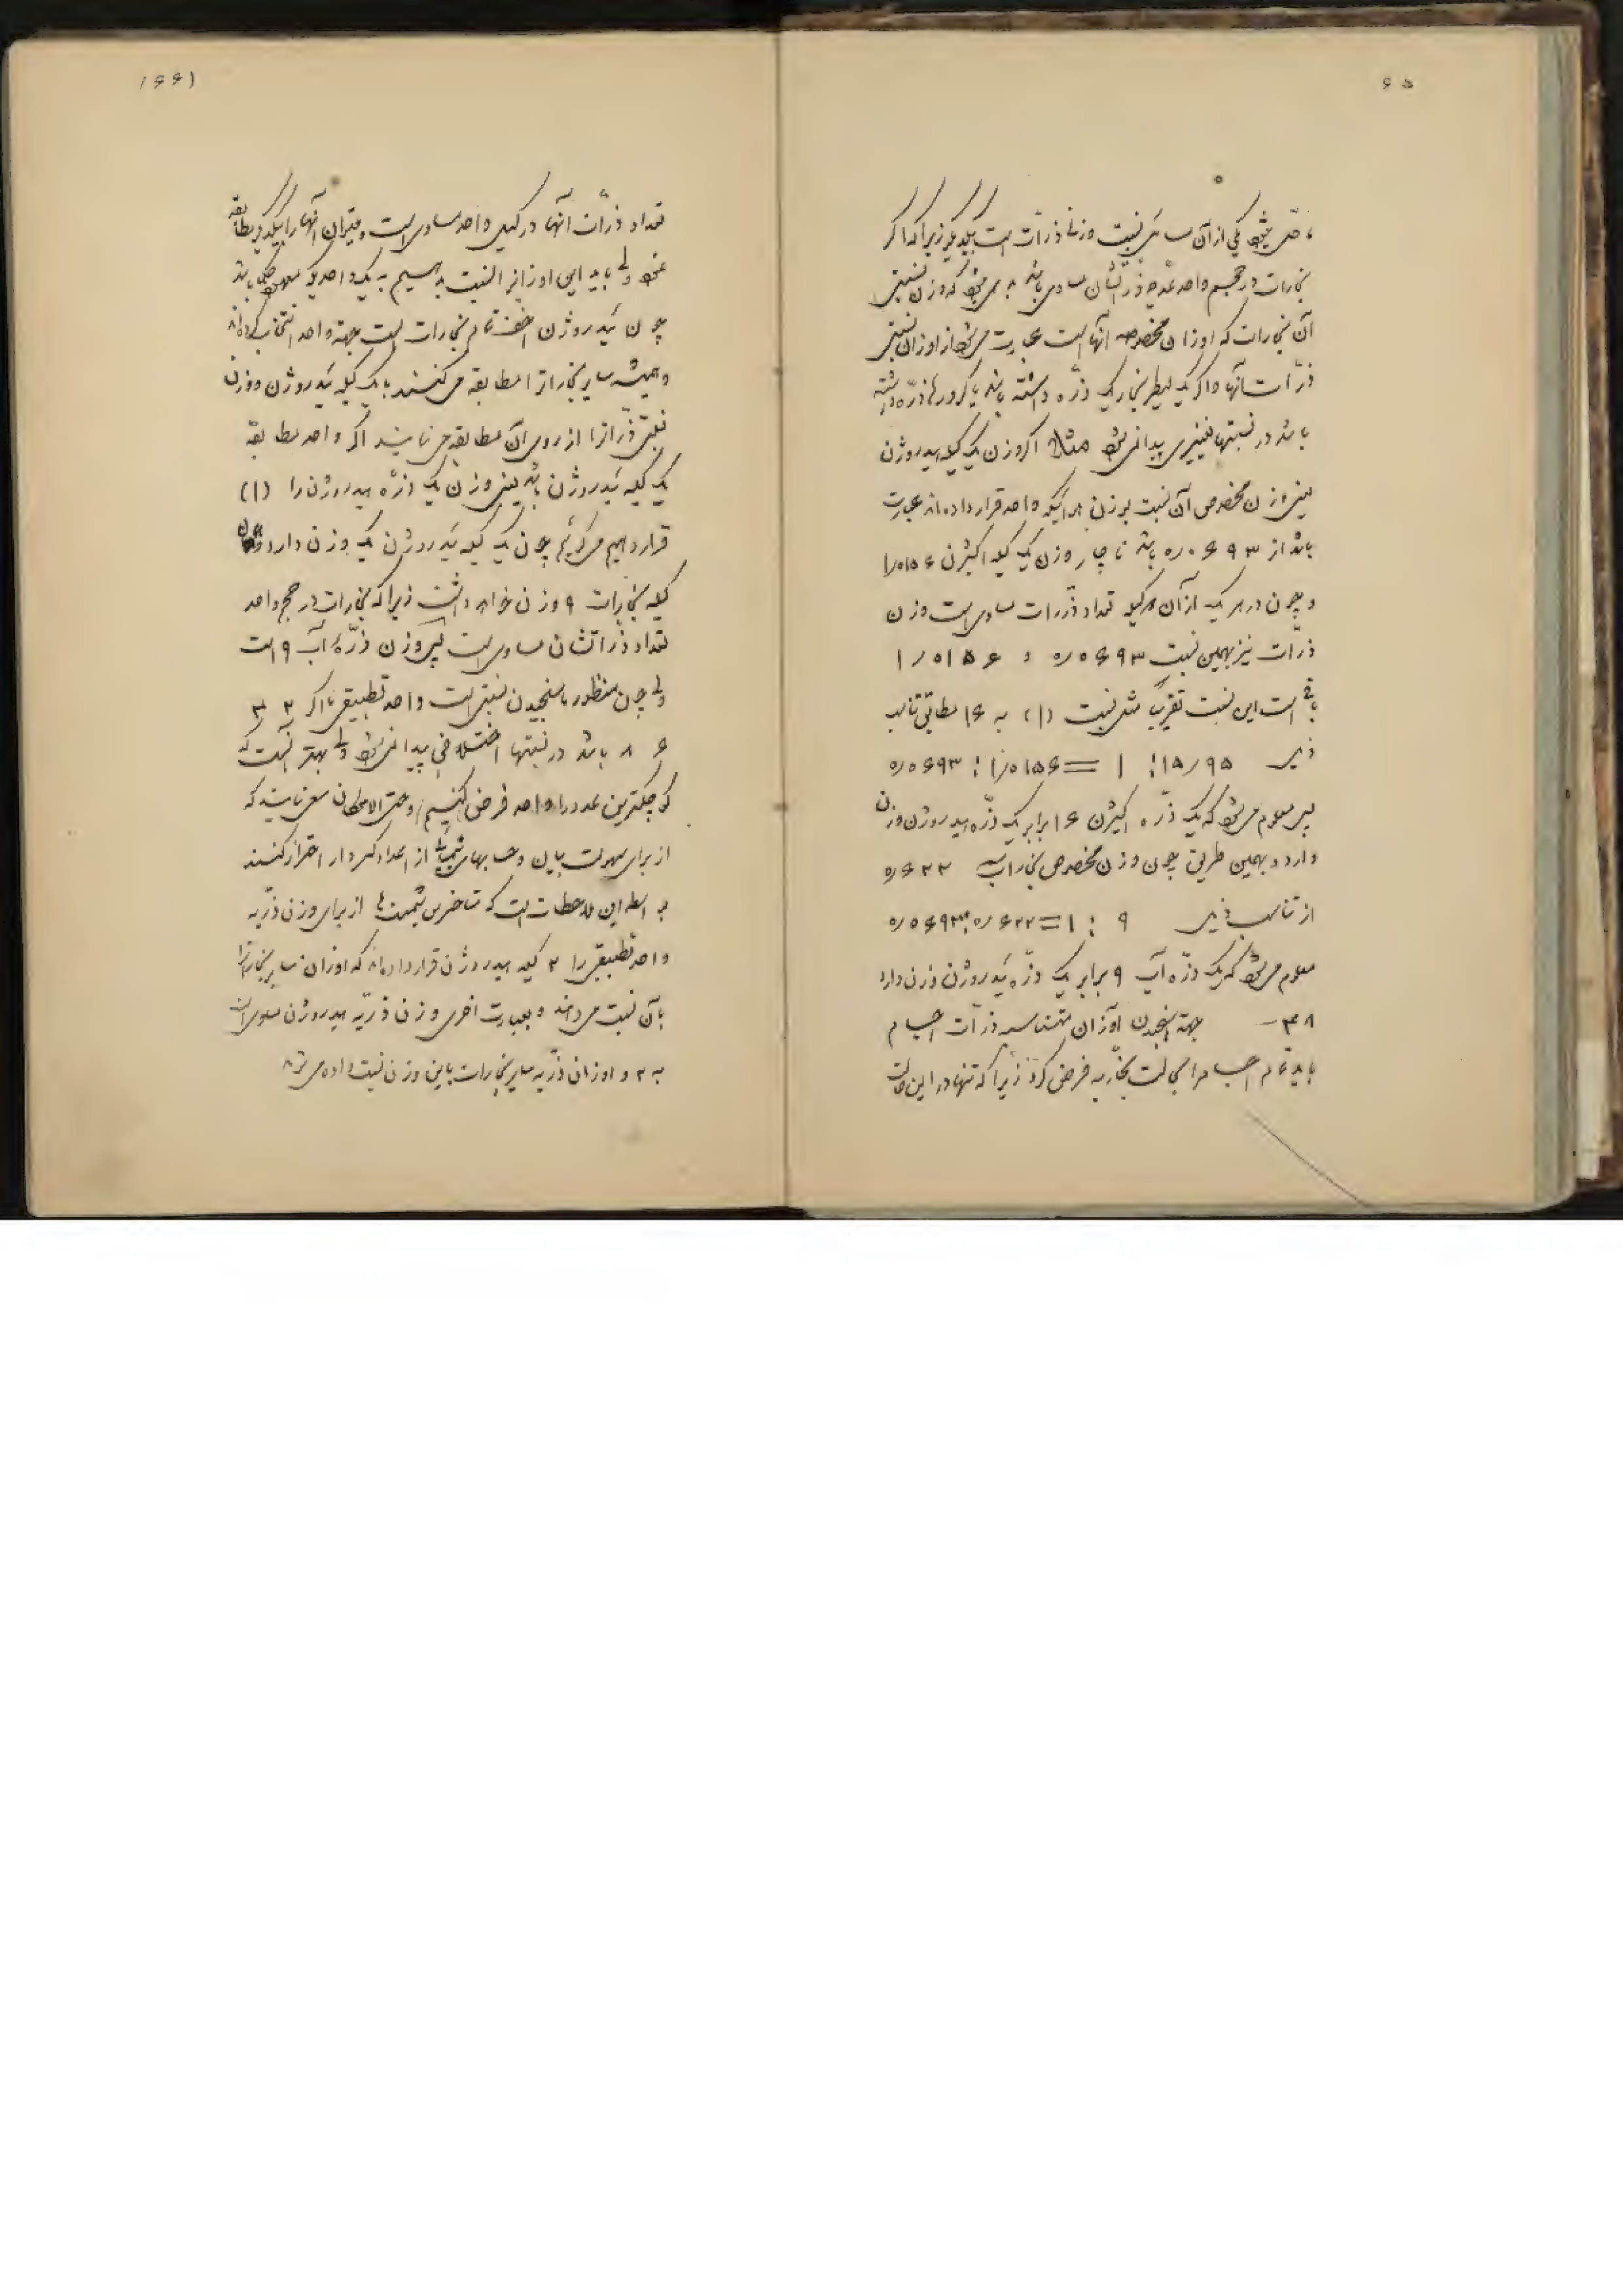 ۶۵
حاصل میشود یکی از آن مسایل نسبت وزنی ذرات است بیکدیگر زیرا که اگر
بخارات در حجم واحد عده ذراتشان مساوی باشد می شود که وزن نسبتی
آن بخارات که اوزان مخصوصه آنها است عبارت می شود از اوزان نسبتی
ذرات آنها و اگر یک لیطر بخار یک ذره داشته باشد یا کرورها ذره داشته
باشد در نسبتها تغییری پیدا نمی شود مثلا اگر وزن یک کیله ئیدروژن
یعنی وزن مخصوص آن نسبت بوزن هوا که واحد قرار داده اند عبارت
باشد از ۰٫۰۶۹۳ باشد ناچار وزن یک کیله اکیژن ۱٫۰۱۵۶
و چون در هر یک از آن کیله تعداد ذرات مساوی است وزن
ذرات نیز بهمین نسبت ۰٫۰۶۹۳ و ۱٫۰۱۵۶
باقی است این نسبت تقریباً مثل نسبت (۱) به ۱۶ مطابق تناسب
ذیل ۱۵٫۹۵ : ۱ = ۱٫۰۱۵۶ : ۰٫۰۶۹۳
پس معلوم می شود که یک ذره اکیژن ۱۶ برابر یک ذره ئیدروژن وزن
دارد و بهمین طریق چون وزن مخصوص بخار آب ۰٫۶۲۲
از تناسب ذیل ۹ : ۱ = ۰٫۶۲۲ : ۰٫۰۶۹۳
معلوم می شود که یک ذره آب ۹ برابر یک ذره ئیدروژن وزن دارد
۴۸ - جهة سنجیدن اوزان متناسبه ذرات اجسام
باید تمام اجسام را بحالت بخاریه فرض کرد زیرا که تنها در این حالت
(۶۶)
تعداد ذرات آنها در کیل واحد مساوی است و میتوان آنها را بیکدیگر مطابقه
نمود ولی باید این اوزان را نسبت بدهیم به یک واحدی که معلوم باشد
چون ئیدروژن اخف تمام بخارات است بجهة واحد انتخاب کرده اند
و همیشه سایر بخارات را مطابقه می کنند با یک کیله ئیدروژن و وزن
نسبتی ذرات را از روی آن مطابقه می نمایند اگر واحد مطابقه
یک کیله ئیدروژن باشد یعنی وزن یک ذره ئیدروژن را (۱)
قرار دهیم می گوئیم چون یک کیله ئیدروژن یک وزن دارد همان
کیله بخارات ۹ وزن خواهد داشت زیرا که بخارات در حجم واحد
تعداد ذراتشان مساوی است پس وزن ذرهٔ آب ۹ است
ولی چون منظور ما سنجیدن نسبتی است واحد تطبیقی ما اگر ۲ ۳
۶ ۸ باشد در نسبتها اختلافی پیدا نمی شود ولی بهتر آنست که
کوچکترین عدد را واحد فرض کنیم و حتی الامکان سعی نمایند که
از برای سهولت بیان و حسابهای شیمیائی از اعداد کسردار احتراز کنند
بواسطه این ملاحظات است که متأخرین شیمیست ها از برای وزن ذریه
واحد تطبیقی را ۲ کیله ئیدروژن قرار داده اند که اوزان سایر بخارات را
بآن نسبت می دهند و بعبارت اخری وزن ذریه ئیدروژن مساوی است
به ۲ و اوزان ذریه سایر بخارات باین وزن نسبت داده می شود